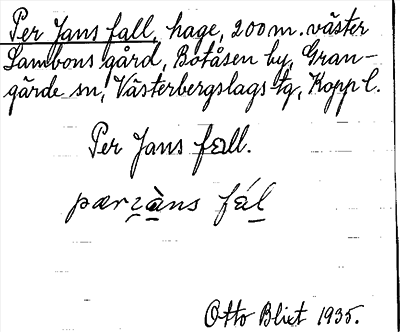 Per Jans fall, hage, 200 m. väster
Lambons gård, Botåsen by, Gran-
gärde sn, Västerbergslags tg, Kopp l.
Per Jans fall.
pærzàns fál
Otto Blixt 1935.